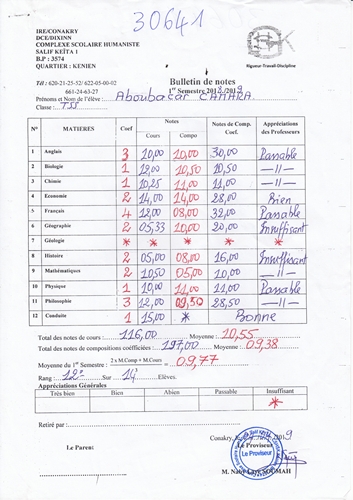 30641
IRE/CONAKRY
DCE/DIXINN
COMPLEXE SCOLAIRE HUMANISTE
SALIF KEÏTA I
B.P : 3574
QUARTIER : KENIEN
Rigueur-Travail-Discipline
Tél : 620-21-25-52/ 622-05-00-02
661-24-63-27
Bulletin de notes
1er Semestre 2018/2019
Prénoms et Nom de l'élève : Aboubacar CAMARA
Classe : TSS
N° MATIERES Coef Notes Notes de Comp. Coef. Appréciations des Professeurs
Cours Compo
1 Anglais 3 10,00 10,00 30,00 Passable
2 Biologie 1 12,00 10,50 10,50 —//—
3 Chimie 1 10,25 11,00 11,00 —//—
4 Economie 2 14,00 14,00 28,00 Bien
5 Français 4 12,00 08,00 32,00 Passable
6 Géographie 2 05,33 10,00 20,00 Insuffisant
7 Géologie * * * * *
8 Histoire 2 05,00 08,00 16,00 Insuffisant
9 Mathématiques 2 10,50 05,00 10,00 —//—
10 Physique 1 10,00 11,00 11,00 Passable
11 Philosophie 3 12,00 09,50 28,50 —//—
12 Conduite 1 15,00 * Bonne
Total des notes de cours : 116,00 Moyenne : 10,55
Total des notes de compositions coéfficiées : 197,00 Moyenne : 09,38
Moyenne du 1er Semestre : 2 x M.Comp + M.Cours = 09,77
Rang : 12e Sur 14 Elèves.
Appréciations Générales
Très bien Bien Abien Passable Insuffisant
*
Retiré par :
Conakry, le 2019
Le Parent Le Proviseur
Le Proviseur
SOUMAH